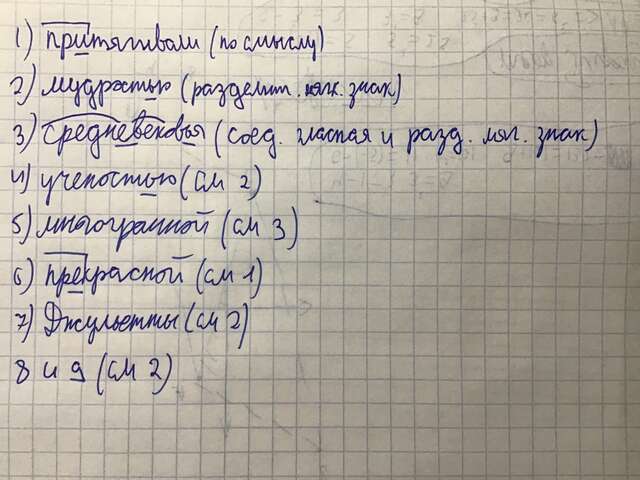 1) притягивали (по смыслу)
2) мудростью (разделит. мяг. знак)
3) средневековья (соед. гласная и разд. мяг. знак)
4) ученостью (см 2)
5) многогранной (см 3)
6) прекрасной (см 1)
7) Джульетты (см 2)
8 и 9 (см 2)